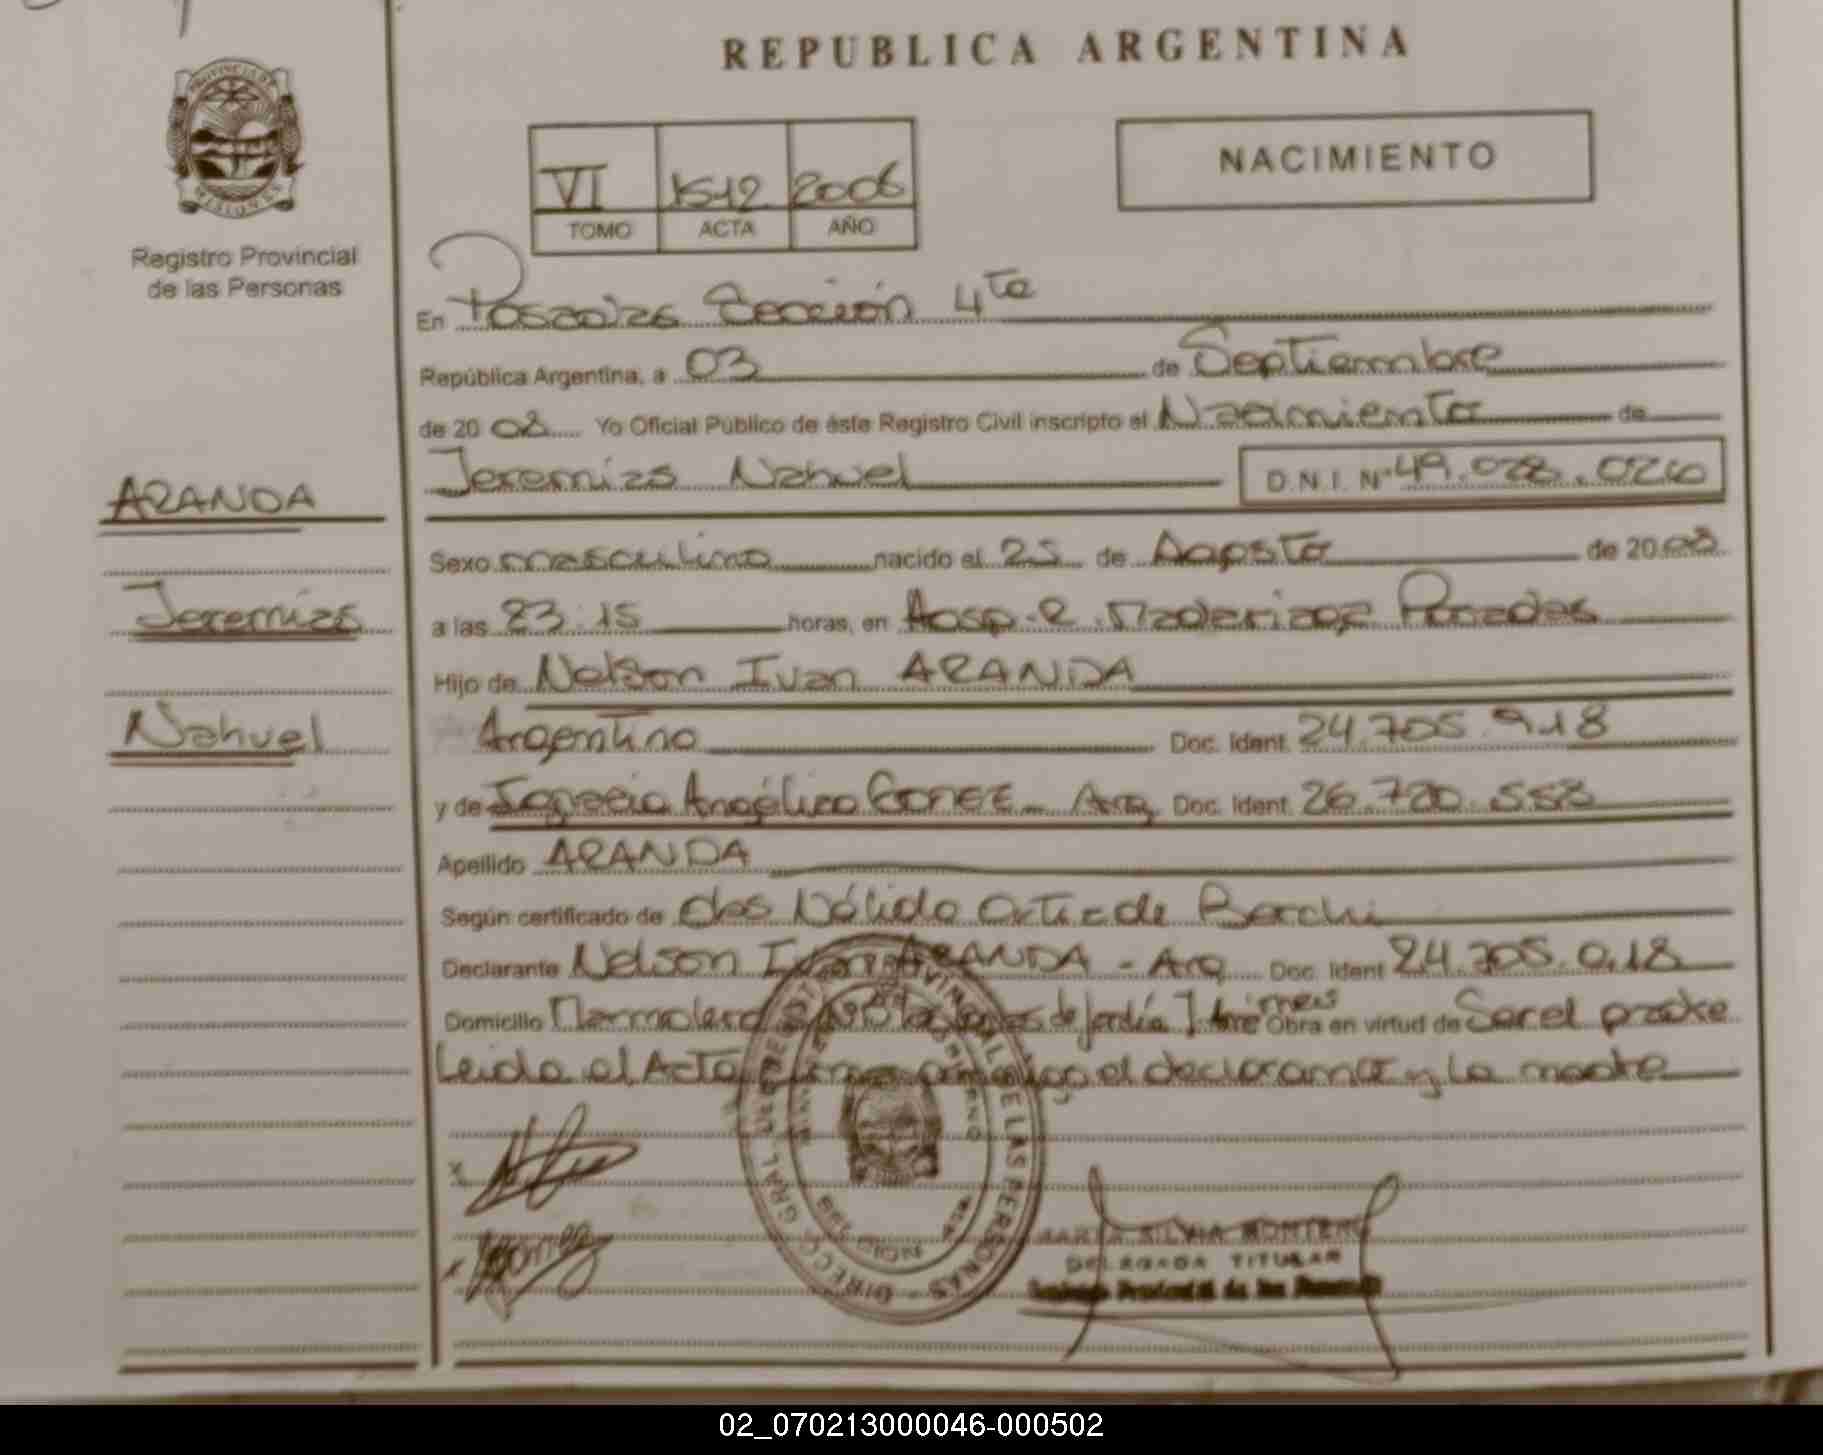 REPUBLICA ARGENTINA
PROVINCIA DE
MISIONES
Registro Provincial
de las Personas
NACIMIENTO
VI 1512
TOMO ACTA AÑO
En Posadas Sección 4ta
República Argentina, a 03 de Septiembre
de 20 08 Yo Oficial Público de éste Registro Civil inscripto el Nacimiento de
Jeremías Nahuel D.N.I. Nº 49.028.
ARANDA
Jeremías
Nahuel
Sexo masculino nacido el 25 de Agosto de 20 08
a las 23:15 horas, en Hosp. R. Madariaga Posadas
Hijo de Nelson Ivan ARANDA
Argentino Doc. Ident. 24.705.918
y de Angélica Arg. Doc. Ident. 26.720.558
Apellido ARANDA
Según certificado de obs Nélida de
Declarante Nelson Ivan ARANDA - Arg Doc. Ident 24.705.
Domicilio Obra en virtud de Ser el padre
Leida el Acta el declarante y la madre
DIRECC. GRAL. DEL REGISTRO PROVINCIAL DE LAS PERSONAS
MARTA SILVIA MONTERO
DELEGADA TITULAR
Registro Provincial de las Personas
02_070213000046-000502